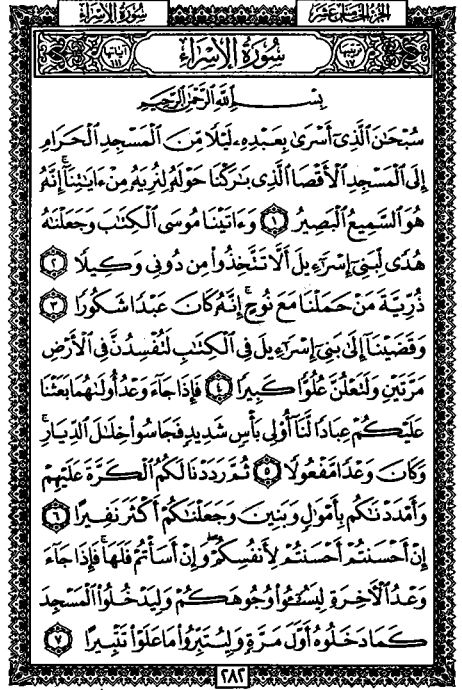 سُورَةُ الإِسْرَاءِ
الجزء الخامس عشر
سُورَةُ الإِسْرَاءِ
بِسْمِ اللَّهِ الرَّحْمَٰنِ الرَّحِيمِ
سُبْحَٰنَ ٱلَّذِىٓ أَسْرَىٰ بِعَبْدِهِۦ لَيْلًا مِّنَ ٱلْمَسْجِدِ ٱلْحَرَامِ
إِلَى ٱلْمَسْجِدِ ٱلْأَقْصَا ٱلَّذِى بَٰرَكْنَا حَوْلَهُۥ لِنُرِيَهُۥ مِنْ ءَايَٰتِنَآ ۚ إِنَّهُۥ
هُوَ ٱلسَّمِيعُ ٱلْبَصِيرُ ١ وَءَاتَيْنَا مُوسَى ٱلْكِتَٰبَ وَجَعَلْنَٰهُ
هُدًى لِّبَنِىٓ إِسْرَٰٓءِيلَ أَلَّا تَتَّخِذُوا۟ مِن دُونِى وَكِيلًا ٢
ذُرِّيَّةَ مَنْ حَمَلْنَا مَعَ نُوحٍ ۚ إِنَّهُۥ كَانَ عَبْدًا شَكُورًا ٣
وَقَضَيْنَآ إِلَىٰ بَنِىٓ إِسْرَٰٓءِيلَ فِى ٱلْكِتَٰبِ لَتُفْسِدُنَّ فِى ٱلْأَرْضِ
مَرَّتَيْنِ وَلَتَعْلُنَّ عُلُوًّا كَبِيرًا ٤ فَإِذَا جَآءَ وَعْدُ أُولَىٰهُمَا بَعَثْنَا
عَلَيْكُمْ عِبَادًا لَّنَآ أُو۟لِى بَأْسٍ شَدِيدٍ فَجَاسُوا۟ خِلَٰلَ ٱلدِّيَارِ ۚ
وَكَانَ وَعْدًا مَّفْعُولًا ٥ ثُمَّ رَدَدْنَا لَكُمُ ٱلْكَرَّةَ عَلَيْهِمْ
وَأَمْدَدْنَٰكُم بِأَمْوَٰلٍ وَبَنِينَ وَجَعَلْنَٰكُمْ أَكْثَرَ نَفِيرًا ٦
إِنْ أَحْسَنتُمْ أَحْسَنتُمْ لِأَنفُسِكُمْ ۖ وَإِنْ أَسَأْتُمْ فَلَهَا ۚ فَإِذَا جَآءَ
وَعْدُ ٱلْأَخِرَةِ لِيَسُۥٓـُٔوا۟ وُجُوهَكُمْ وَلِيَدْخُلُوا۟ ٱلْمَسْجِدَ
كَمَا دَخَلُوهُ أَوَّلَ مَرَّةٍ وَلِيُتَبِّرُوا۟ مَا عَلَوْا۟ تَتْبِيرًا ٧
٢٨٢